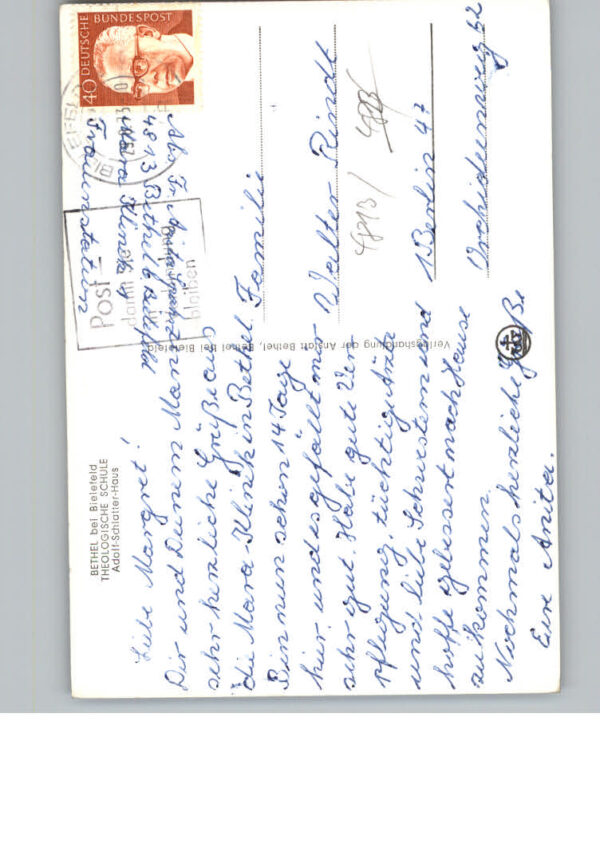 BETHEL bei Bielefeld
THEOLOGISCHE SCHULE
Adolf-Schlatter-Haus
Liebe Margret!
Dir und Deinem Mann
sehr herzliche Grüße aus
die Mara-Klinik in Bethel.
Bin nun schon 14 Tage
hier und es gefällt mir
sehr gut. Habe gute Ver
pflegung, tüchtige Ärzte
und liebe Schwestern und
hoffe gebessert nach Hause
zu kommen.
Nochmals herzliche Grüße
Eure Anita.
Verlagshandlung der Anstalt Bethel, Bethel bei Bielefeld
Abs. Fr. Anita
4813 Bethel b. Bielefeld
Mara Klinik
Frauenstation
Post
damit
bleiben
BIELEFELD
40 DEUTSCHE BUNDESPOST
Familie
Walter Rindt
4813/ 4813
1 Berlin 47
Orchideenweg 52